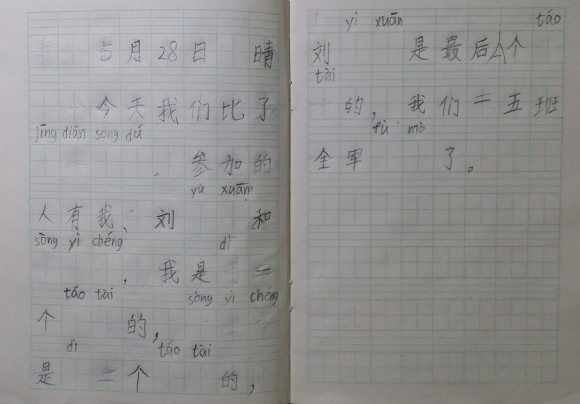 5月28日 晴
今天我们比了
jīng diǎn sòng dú
。参加的
yù xuān
人有我、刘 和
sòng yì chéng dì
，我是 二
táo tài sòng yì chéng
个 的，
dì táo tài
是 二个 的，
yì xuān táo
刘 是最后1个
tài
的，我们二五班
fù mò
全军 了。